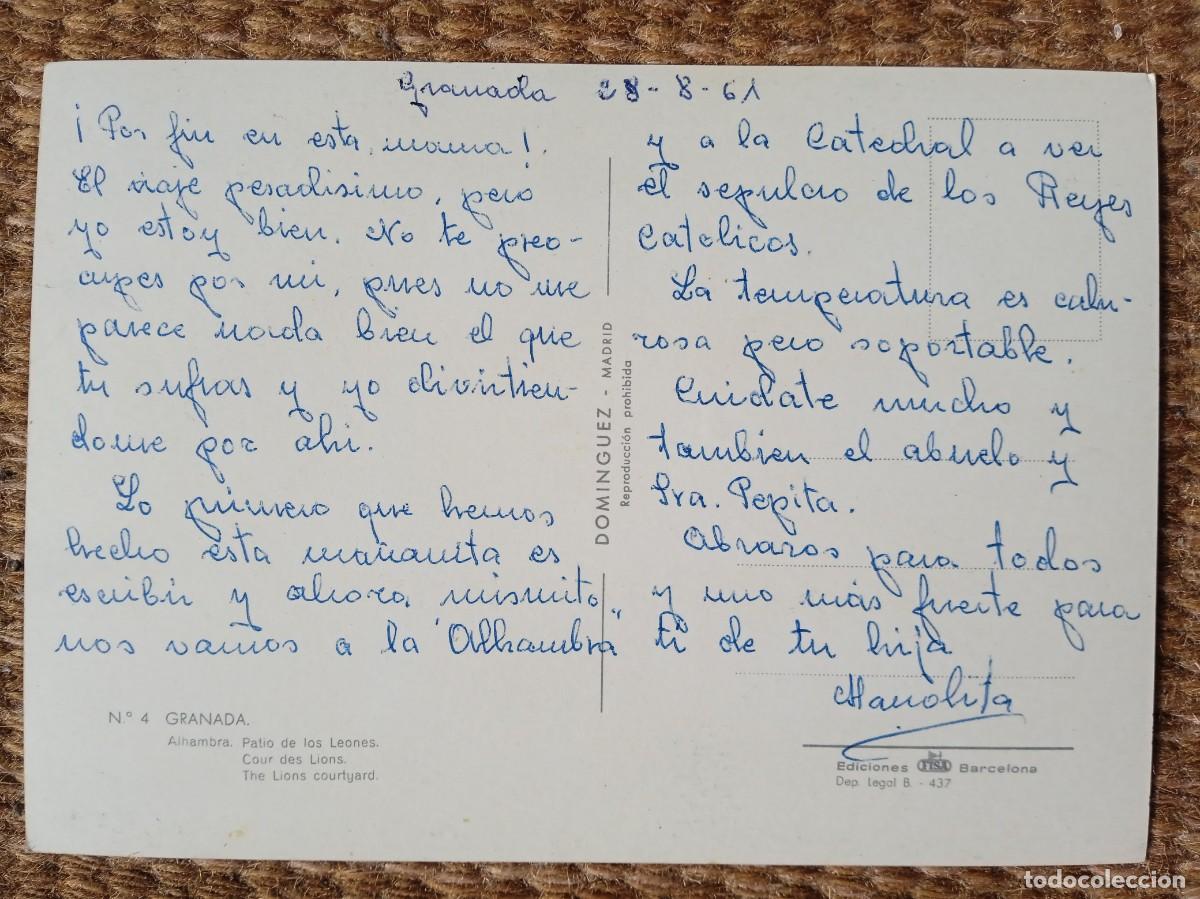 Granada 28-8-61
¡Por fin en esta, mama!.
El viaje pesadisimo, pero
yo estoy bien. No te preo-
cupes por mi, pues no me
parece nada bien el que
tu sufras y yo divirtien-
dome por ahi.
Lo primero que hemos
hecho esta mañanita es
escribir y ahora mismito
nos vamos a la "Alhambra"
y a la Catedral a ver
el sepulcro de los Reyes
Catolicos.
La temperatura es calu-
rosa pero soportable.
Cuidate mucho y
tambien el abuelo y
Sra. Pepita.
Abrazos para todos
y uno más fuerte para
ti de tu hija
Manolita
DOMINGUEZ - MADRID
Reproducción prohibida
N.º 4 GRANADA.
Alhambra. Patio de los Leones.
Cour des Lions.
The Lions courtyard.
Ediciones FISA Barcelona
Dep. legal B. - 437
todocoleccion